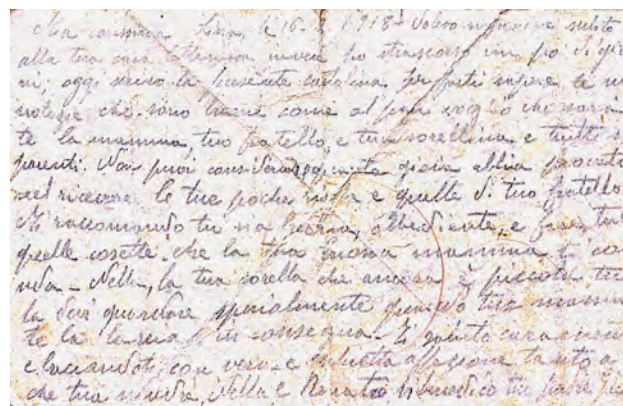 Mia carissima Lina, li 16- 1918- Volevo rispondere subito
alla tua cara letterina invece ho trascorso un po' di gior
ni; oggi scrivo la presente cartolina per farti sapere le mie
notizie che sono buone come al pari voglio che novia
te la mamma, tuo fratello, e tua sorellina e tutti i
parenti. Non puoi considerare quanta gioia abbia provata
nel ricevere le tue poche righe e quelle di tuo fratello
Mi raccomando tu sia buona, obbediente, e fare tut
quelle cosette che la tua buona mamma ti com
nda - Nella, la tua sorella che ancora è piccola tu
la devi guardare specialmente quando tua mamma
te la lascia in consegna - Ti saluto cara
e baciandoti con vero e affezione tanto a
che tua madre, Nella e Renato, ti benedico tuo padre